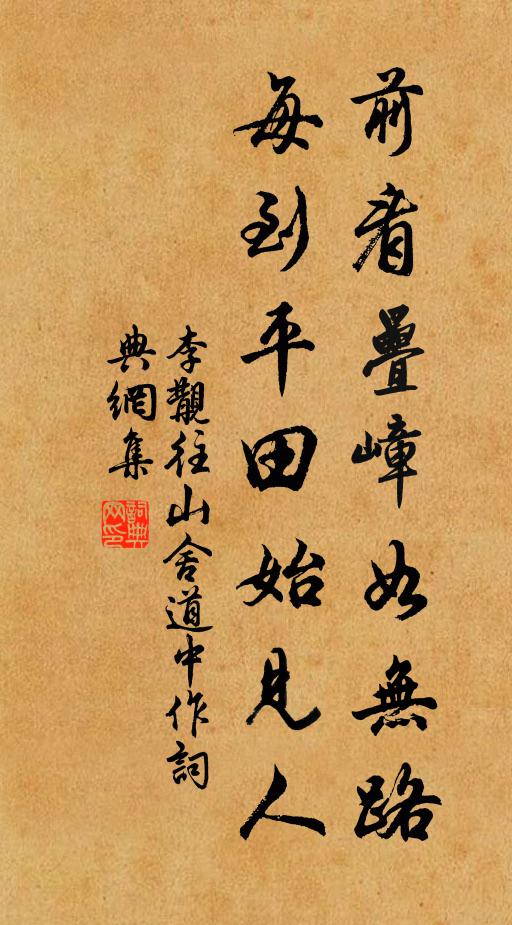 前看疊嶂如無路
每到平田始見人
李覯往山舍道中作詞
典網集
詞典
网印